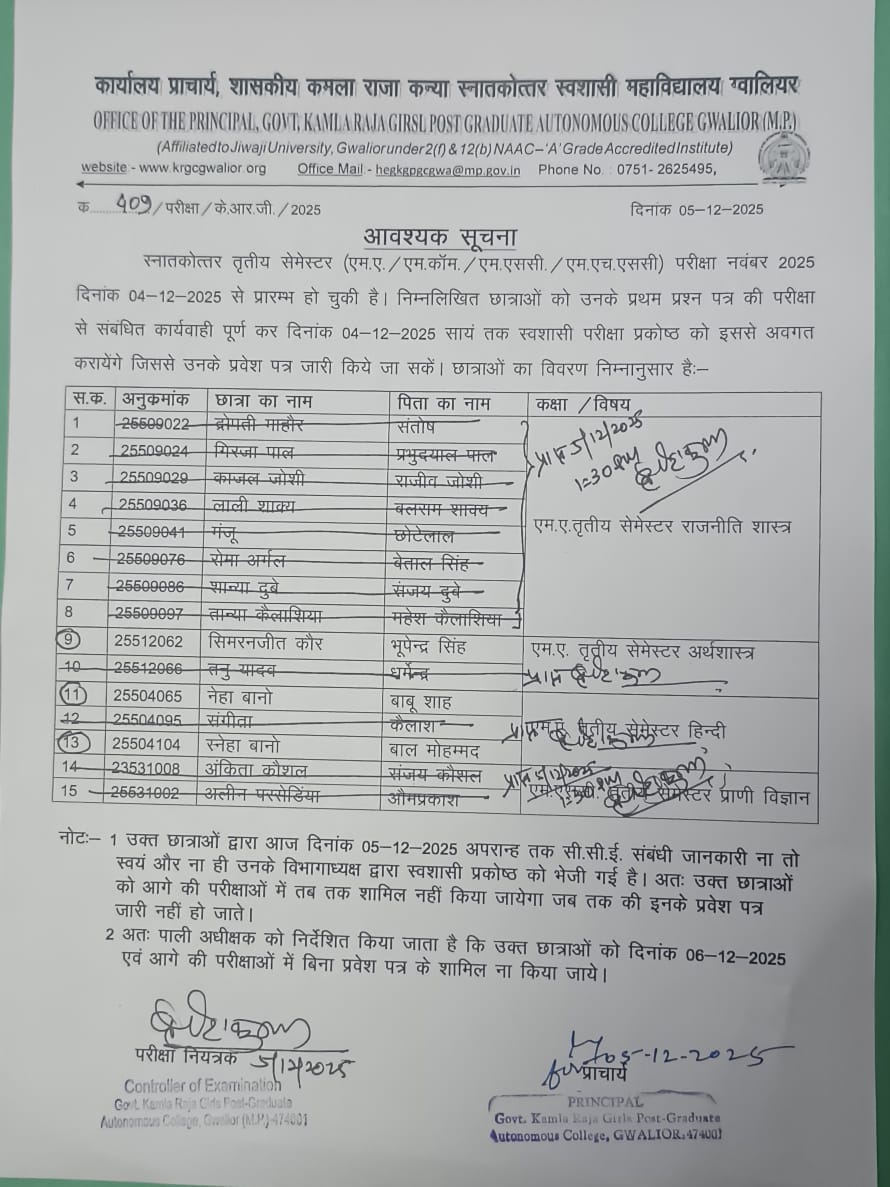 कार्यालय प्राचार्य, शासकीय कमला राजा कन्या स्नातकोत्तर स्वशासी महाविद्यालय ग्वालियर
OFFICE OF THE PRINCIPAL, GOVT. KAMLA RAJA GIRSL POST GRADUATE AUTONOMOUS COLLEGE GWALIOR (M.P.)
(Affiliated to Jiwaji University, Gwalior under 2(f) & 12(b) NAAC – 'A' Grade Accredited Institute)
website - www.krgcgwalior.org Office Mail - hegkgpgcgwa@mp.gov.in Phone No. : 0751- 2625495,
क 409 / परीक्षा / के.आर.जी. / 2025 दिनांक 05-12-2025
आवश्यक सूचना
स्नातकोत्तर तृतीय सेमेस्टर (एम.ए. / एम.कॉम. / एम.एससी. / एम.एच.एससी) परीक्षा नवंबर 2025
दिनांक 04-12-2025 से प्रारम्भ हो चुकी है। निम्नलिखित छात्राओं को उनके प्रथम प्रश्न पत्र की परीक्षा
से संबंधित कार्यवाही पूर्ण कर दिनांक 04-12-2025 सायं तक स्वशासी परीक्षा प्रकोष्ठ को इससे अवगत
करायेंगे जिससे उनके प्रवेश पत्र जारी किये जा सकें। छात्राओं का विवरण निम्नानुसार हैः–
स.क. अनुकमांक छात्रा का नाम पिता का नाम कक्षा / विषय
1 25509022 द्रोपती माहौर संतोष
2 25509024 गिरजा पाल प्रभुदयाल पाल
प्राप्त 5/12/2025
1:30 PM
3 25509029 काजल जोशी राजीव जोशी
4 25509036 लाली शाक्य बलराम शाक्य
5 25509041 मंजू छोटेलाल एम.ए.तृतीय सेमेस्टर राजनीति शास्त्र
6 25509076 रोमा अर्गल बेताल सिंह
7 25509086 शान्या दुबे संजय दुबे
8 25509097 तान्या कैलाशिया महेश कैलाशिया
9 25512062 सिमरनजीत कौर भूपेन्द्र सिंह एम.ए. तृतीय सेमेस्टर अर्थशास्त्र
10 25512066 तनु यादव धर्मेन्द्र प्राप्त
11 25504065 नेहा बानो बाबू शाह
12 25504095 संगीता कैलाश प्राप्त एम.ए. तृतीय सेमेस्टर हिन्दी
13 25504104 स्नेहा बानो बाल मोहम्मद
14 23531008 अंकिता कौशल संजय कौशल प्राप्त 5/12/2025
1:30 PM
15 25531002 अलीन परसेडिया औमप्रकाश एम.एससी. तृतीय सेमेस्टर प्राणी विज्ञान
नोटः– 1 उक्त छात्राओं द्वारा आज दिनांक 05-12-2025 अपरान्ह तक सी.सी.ई. संबंधी जानकारी ना तो
स्वयं और ना ही उनके विभागाध्यक्ष द्वारा स्वशासी प्रकोष्ठ को भेजी गई है। अतः उक्त छात्राओं
को आगे की परीक्षाओं में तब तक शामिल नहीं किया जायेगा जब तक की इनके प्रवेश पत्र
जारी नहीं हो जाते।
2 अतः पाली अधीक्षक को निर्देशित किया जाता है कि उक्त छात्राओं को दिनांक 06-12-2025
एवं आगे की परीक्षाओं में बिना प्रवेश पत्र के शामिल ना किया जाये।
परीक्षा नियत्रक 5/12/2025
Controller of Examination
Govt. Kamla Raja Girls Post-Graduate
Autonomous College, Gwalior (M.P.)-474001
05-12-2025
for प्राचार्य
PRINCIPAL
Govt. Kamla Raja Girls Post-Graduate
Autonomous College, GWALIOR.474001